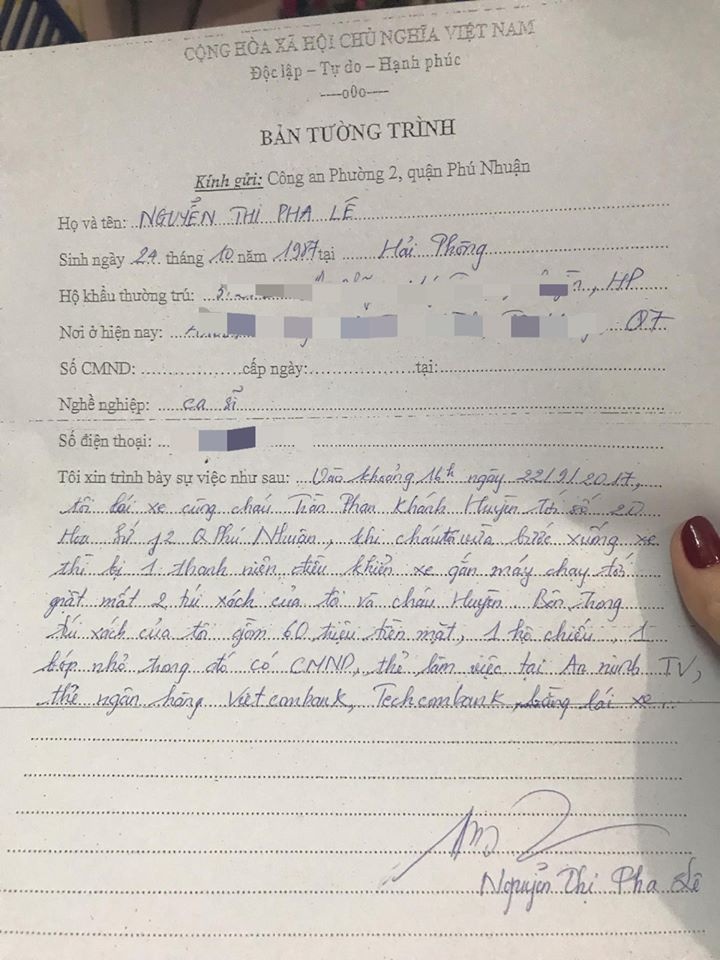 CỘNG HÒA XÃ HỘI CHỦ NGHĨA VIỆT NAM
Độc lập – Tự do – Hạnh phúc
----o0o----
BẢN TƯỜNG TRÌNH
Kính gửi: Công an Phường 2, quận Phú Nhuận
Họ và tên: NGUYỄN THỊ PHA LÊ
Sinh ngày 24 tháng 10 năm 1987 tại Hải Phòng
Hộ khẩu thường trú: , HP
Nơi ở hiện nay: Q7
Số CMND: cấp ngày: tại:
Nghề nghiệp: ca sĩ
Số điện thoại:
Tôi xin trình bày sự việc như sau: Vào khoảng 16h ngày 22/9/2017,
tôi lái xe cùng cháu Trần Phan Khánh Huyền tới số 20
Hoa Sứ f2 Q Phú Nhuận, khi cháu vừa bước xuống xe
thì bị 1 thanh niên điều khiển xe gắn máy chạy tới
giật mất 2 túi xách của tôi và cháu Huyền. Bên trong
túi xách của tôi gồm 60 triệu tiền mặt, 1 hộ chiếu, 1
bóp nhỏ trong đó có CMND, thẻ làm việc tại An ninh TV,
thẻ ngân hàng Vietcombank, Techcombank, bằng lái xe
Nguyễn Thị Pha Lê